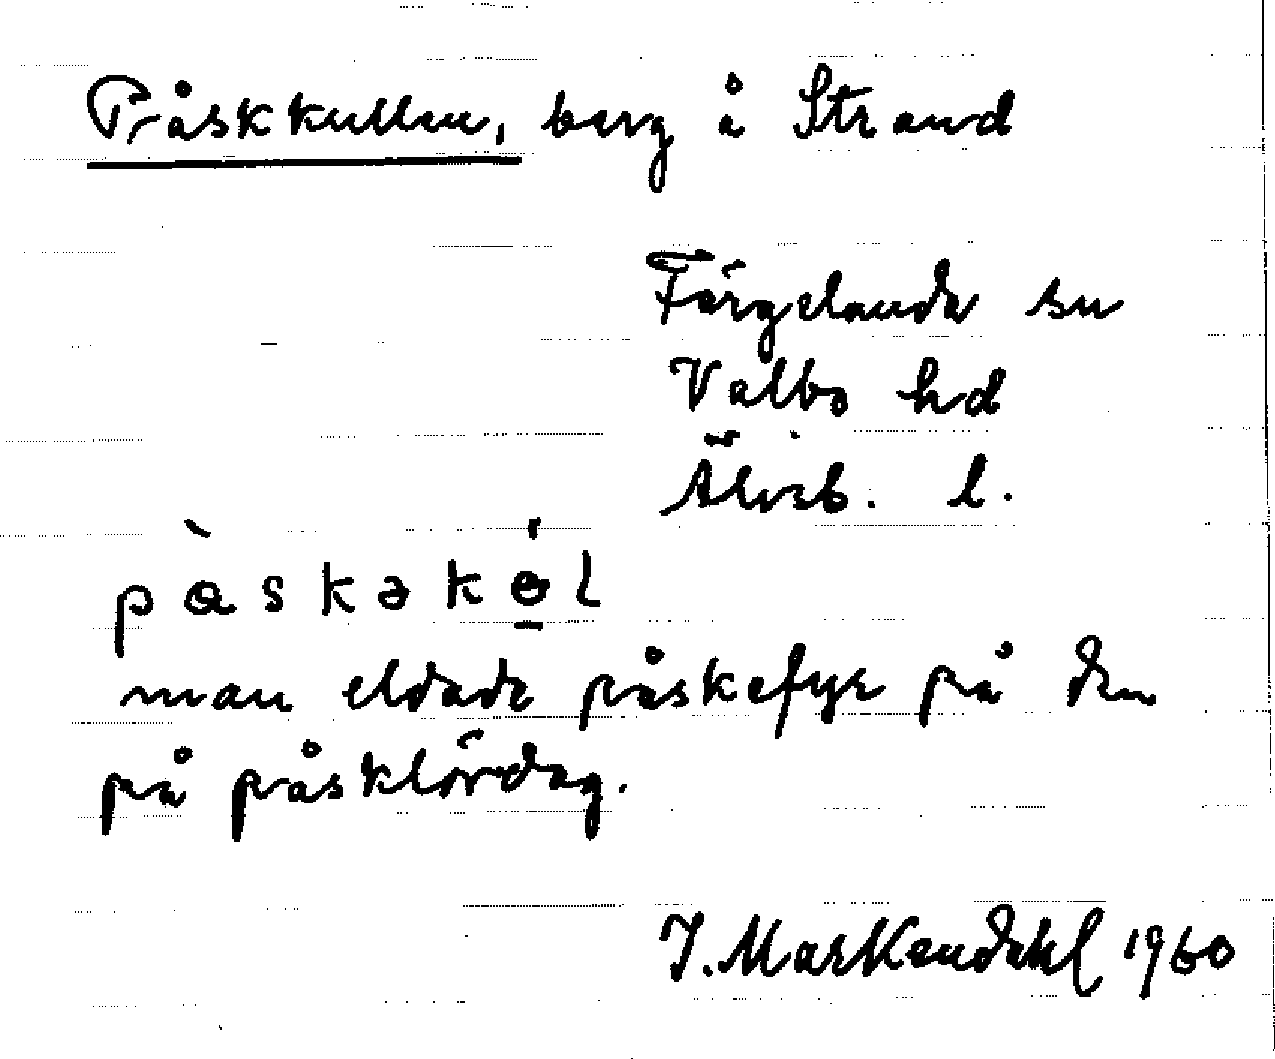 Påskkullen, berg å Strand
Färgelanda sn
Valbo hd
Älvsb. l.
pàskəkө́l
man eldade påskefyr på den
på påsklördag.
J. Markendahl 1960